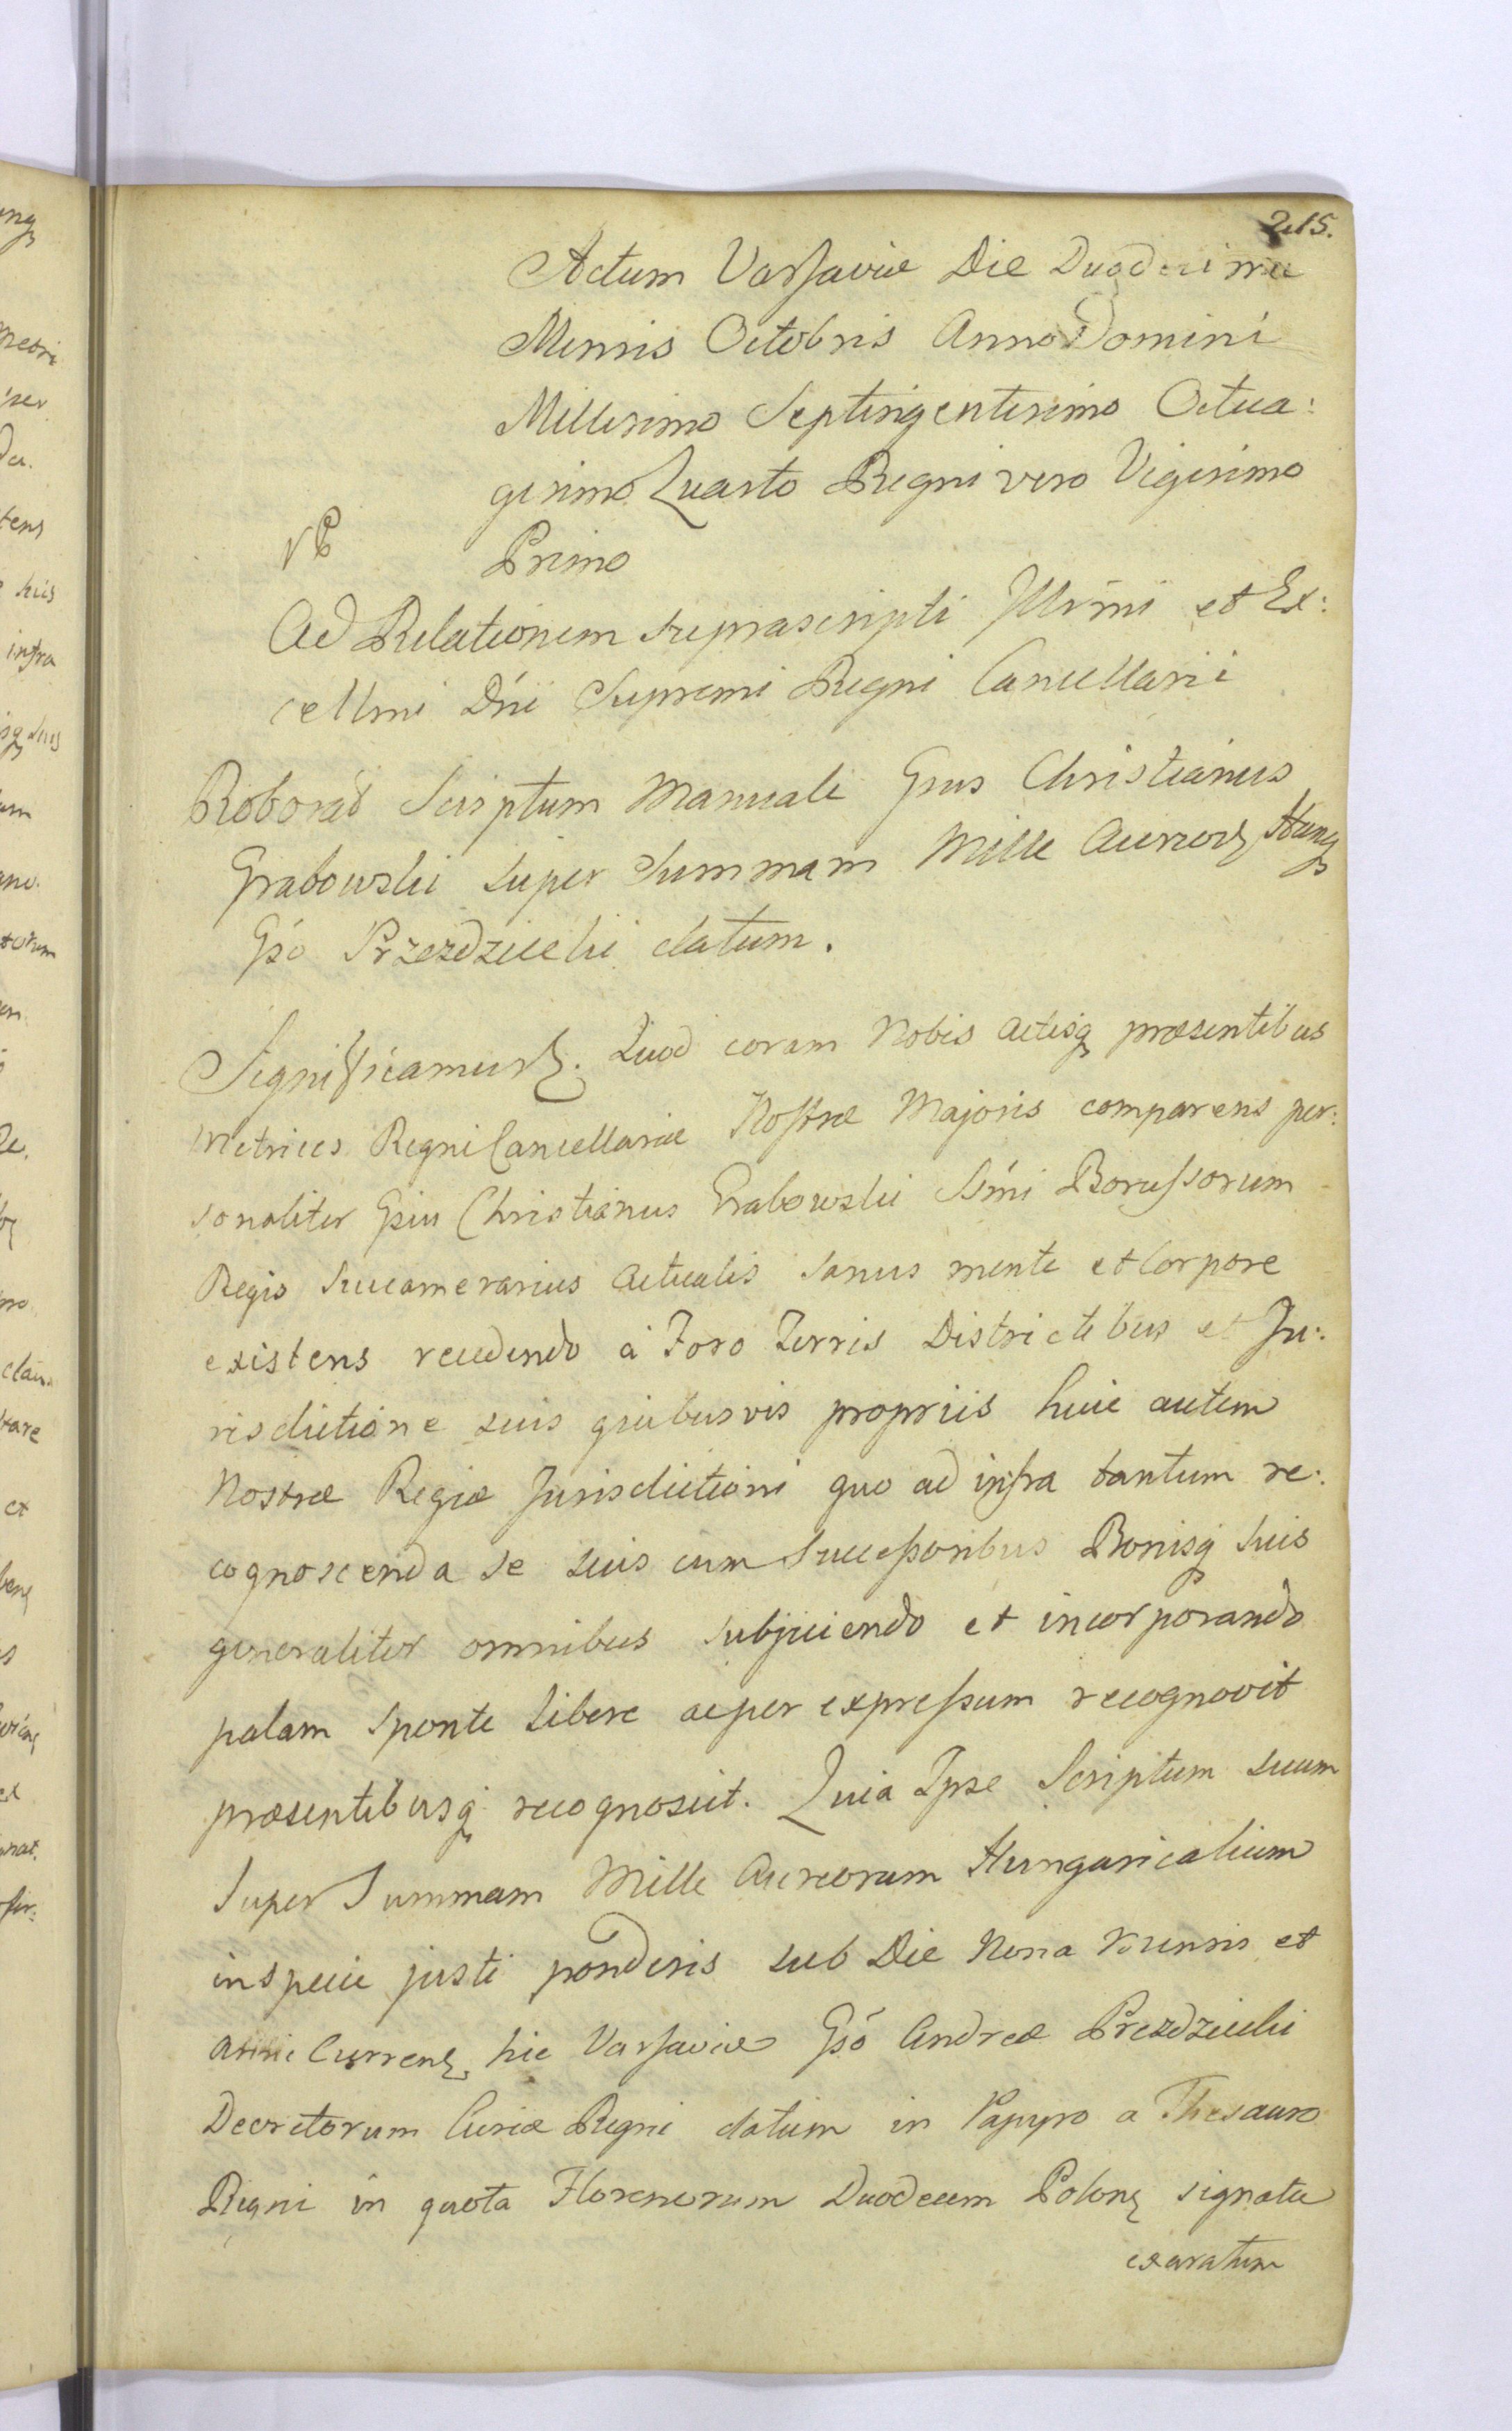 215.
Actum Varsaviæ Die Duodecima
Mensis Octobris Anno Domini
Millesimo Septingentesimo Octua:
gesimo Quarto Regni vero Vigesimo
Primo
Ad Relationem suprascripti Illrmi et Ex:
cellmi Dni Supremi Regni Cancellarii
Roborat Scriptum Manuale Gsus Christianus
Grabowski super Summam Mille Aureor Hung
Gso Przezdziecki datum.
Significamus. Quod coram Nobis Actisq præsentibus
Metrices Regni Cancellariæ Nostræ Majoris comparens per:
sonaliter Gsus Christianus Grabowski Ssmi Borussorum
Regis Succamerarius Actualis sanus mente et Corpore
existens recedendo à Foro Terris Districtibus et Ju:
risdictione suis quibusvis propriis huic autem
Nostræ Regiæ Jurisdictioni quo ad infra tantum re:
cognoscenda se suis cum Successoribus Bonisq suis
generaliter omnibus subjiciendo et incorporando
palam sponte libere ac per expressum recognovit
præsentibusq recognoscit. Quia Ipse Scriptum suum
super Summam Mille Aureorum Hungaricalium
in specie justi ponderis sub Die Nona Mensis et
Anni Curren. hic Varsaviæ Gso Andreæ Przezdziecki
Decretorum Curiæ Regni datum in Papyro a Thesauro
Regni in quota Florenorum Duodecem Polon signata
exaratum